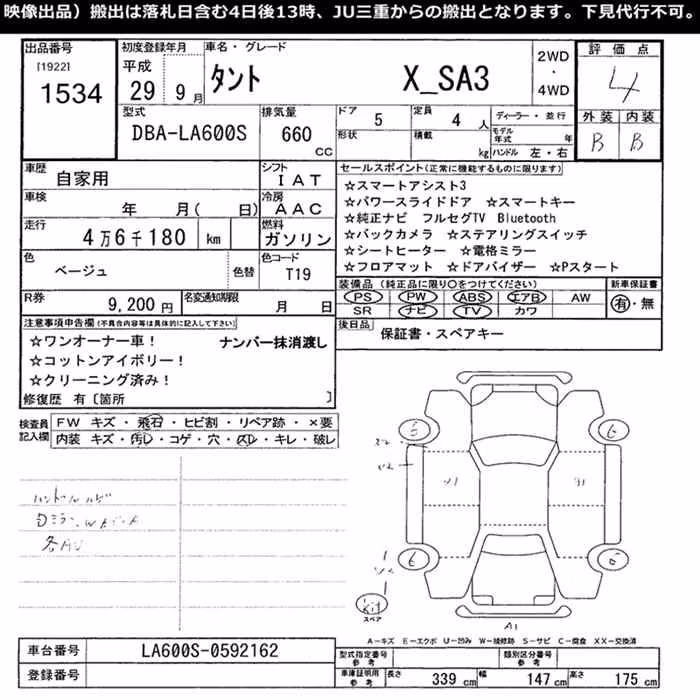 映像出品）搬出は落札日含む4日後13時、JU三重からの搬出となります。下見代行不可。
出品番号
[1922]
1534
初度登録年月
平成
29 9月
車名・グレード
タント X_SA3
2WD
・
4WD
評価点
4
外装 内装
B B
型式
DBA-LA600S
排気量
660
CC
ドア 5
形状
定員 4人
積載 kg
ディーラー・並行
モデル年式 年
ハンドル 左・右
車歴
自家用
シフト
IAT
車検
年 月( 日)
冷房
AAC
走行
4万6千180 km
燃料
ガソリン
色
ベージュ
色替
色コード
T19
R券
9,200円
名変通知期限
月 日
セールスポイント(正常に機能するものに限ります)
☆スマートアシスト3
☆パワースライドドア ☆スマートキー
☆純正ナビ フルセグTV Bluetooth
☆バックカメラ ☆ステアリングスイッチ
☆シートヒーター ☆電格ミラー
☆フロアマット ☆ドアバイザー ☆Pスタート
装備品 (純正品に限り○をつけてください)
PS PW ABS エアB AW
SR ナビ TV カワ
新車保証書
有・無
後日品
保証書・スペアキー
注意事項申告欄(不具合内容等は具体的に記入して下さい)
☆ワンオーナー車！ ナンバー抹消渡し
☆コットンアイボリー！
☆クリーニング済み！
修復歴 有〔箇所 〕
検査員記入欄
FW キズ・飛石・ヒビ割・リペア跡・×要
内装 キズ・汚れ・コゲ・穴・スレ・キレ・破レ
6
6
6
6
スペア
A1
A-キズ E-エクボ U-凹み W-補修跡 S-サビ C-腐食 XX-交換済
車台番号
LA600S-0592162
登録番号
型式指定番号
参考
類別区分番号
参考
車庫証明用
参考
長さ 339 cm
幅 147 cm
高さ 175 cm